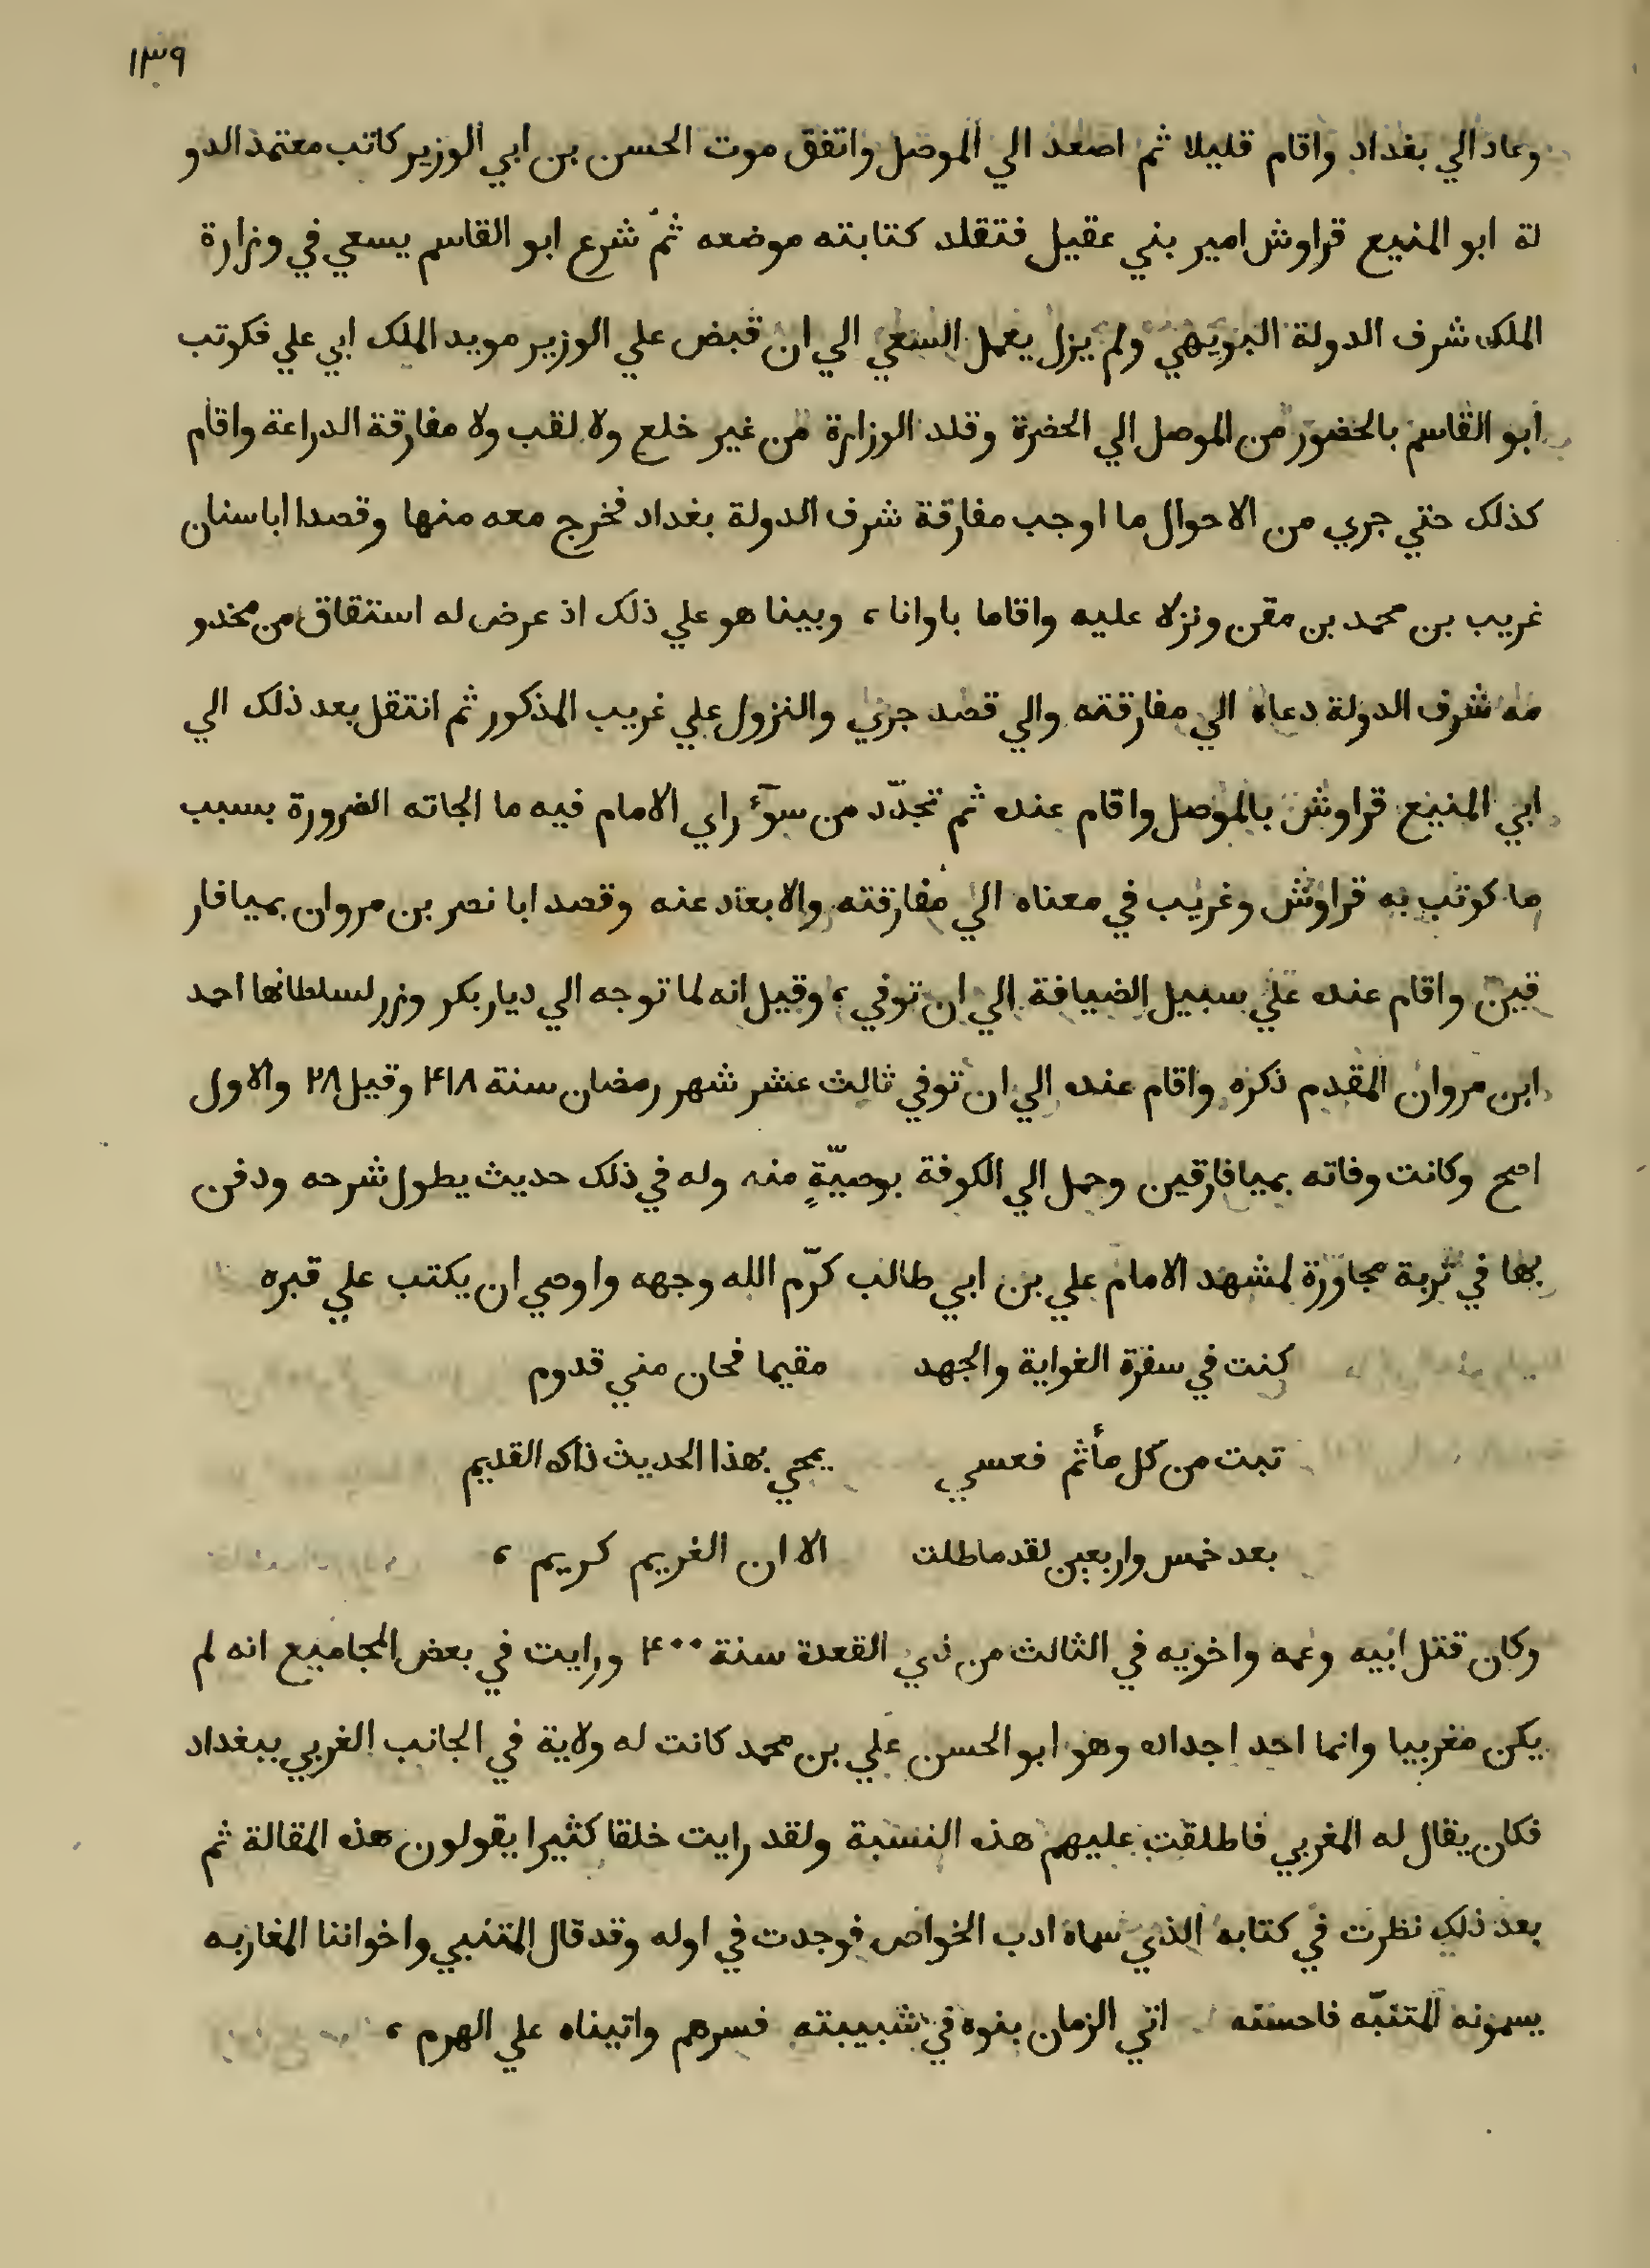 ١٣٩
وعاد الي بغداد واقام قليلا ثم اصعد الي الموصل واتفق موت الحسن بن ابي الوزير كاتب معتمد الدو
لة ابو المنيع قراوش امير بني عقيل فتقلد كتابته موضعه ثمّ شرع ابو القاسم يسعي في وزارة
الملك شرف الدولة البويهي ولم يزل يعمل السعي الي ان قبض علي الوزير مويد الملك ابي علي فكوتب
ابو القاسم بالحضور من الموصل الي الحضرة وقلد الوزارة من غير خلع ولا لقب ولا مفارقة الدراعة واقام
كذلك حتي جري من الاحوال ما اوجب مفارقة شرف الدولة بغداد فخرج معه منها وقصدا ابا سنان
غريب بن محمد بن مقن ونزلا عليه واقاما باوانا، وبينا هو علي ذلك اذ عرض له استقاق من مخدو
مه شرف الدولة دعاه الي مفارقته والي قصد جري والنزول علي غريب المذكور ثم انتقل بعد ذلك الي
ابي المنيع قراوش بالموصل واقام عنده ثم تجدّد من سوٓء راي الامام فيه ما الجاته الضرورة بسبب
ما كوتب به قراوش وغريب في معناه الي مفارقته والابعاد عنه وقصد ابا نصر بن مروان بميافار
قين واقام عنده علي سبيل الضيافة الي ان توفي، وقيل انه لما توجه الي ديار بكر وزر لسلطانها احمد
ابن مروان المقدم ذكره واقام عنده الي ان توفي ثالث عشر شهر رمضان سنة ۴١٨ وقيل ٢٨ والاول
اصح وكانت وفاته بميافارقين وحمل الي الكوفة بوصيّةٍ منه وله في ذلك حديث يطول شرحه ودفن
بها في تربة مجاورة لمشهد الامام علي بن ابي طالب كرّم الله وجهه واوصي ان يكتب علي قبره
كنت في سفرة الغواية والجهد مقيما فحان مني قدوم
تبت من كل مأثم فعسي يمحي بهذا الحديث ذاك القديم
بعد خمس واربعين لقد ماطلت الا ان الغريم كريم،
وكان قتل ابيه وعمه واخويه في الثالث من ذي القعدة سنة ۴٠٠ ورايت في بعض المجاميع انه لم
يكن مغربيا وانما احد اجداده وهو ابو الحسن علي بن محمد كانت له ولاية في الجانب الغربي ببغداد
فكان يقال له المغربي فاطلقت عليهم هذه النسبة ولقد رايت خلقا كثيرا يقولون هذه المقالة ثم
بعد ذلك نظرت في كتابه الذي سماه ادب الخواص فوجدت في اوله وقد قال المتنبي واخواننا المغاربه
يسمونه المتنبّه فاحسنه اتي الزمان بنوه في شبيبته فسرهم واتيناه علي الهرم،